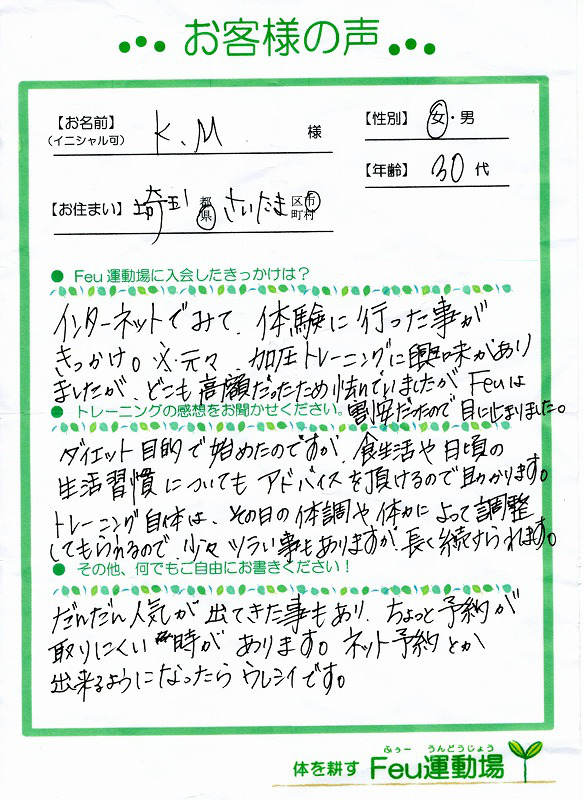 お客様の声
【お名前】 K.M 様
(イニシャル可)
【性別】 女・男
【年齢】 30代
【お住まい】 埼玉 都県 さいたま 区市町村
● Feu運動場に入会したきっかけは？
インターネットでみて、体験に行った事が
きっかけ。元々、加圧トレーニングに興味があり
ましたが、どこも高額だったため
Feuは
割安だったので目に止まりました。
● トレーニングの感想をお聞かせください。
ダイエット目的で始めたのですが、食生活や日頃の
生活習慣についてもアドバイスを頂けるので助かります。
トレーニング自体は、その日の体調や体力によって調整
してもらえるので、少々ツラい事もありますが、長く続けられます。
● その他、何でもご自由にお書きください！
だんだん人気が出てきた事もあり、ちょっと予約が
取りにくい時があります。ネット予約とか
出来るようになったらウレシイです。
ふぅー うんどうじょう
体を耕す Feu運動場